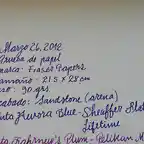 Marzo 26, 2012
Prueba de papel
marca: Fraser Papers
tamaño: 21.5 x 28 cm
90 grs
acabado: Sandstone (arena)
tinta Aurora Blue - Sheaffer
Lifetime
Fahrney's Plum - Pelikan M